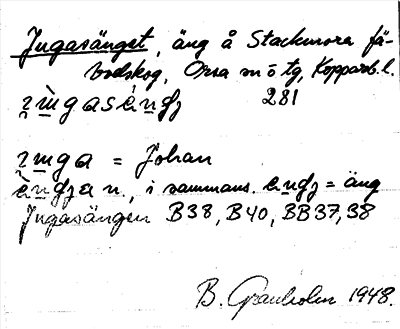 Jugasänget, äng å Stackmora fä-
bodskog, Orsa sn o tg, Kopparb. l.
281
= Johan
n., i sammans. = äng
Jugasängen B38, B40, BB37, 38
B. Granholm 1948.